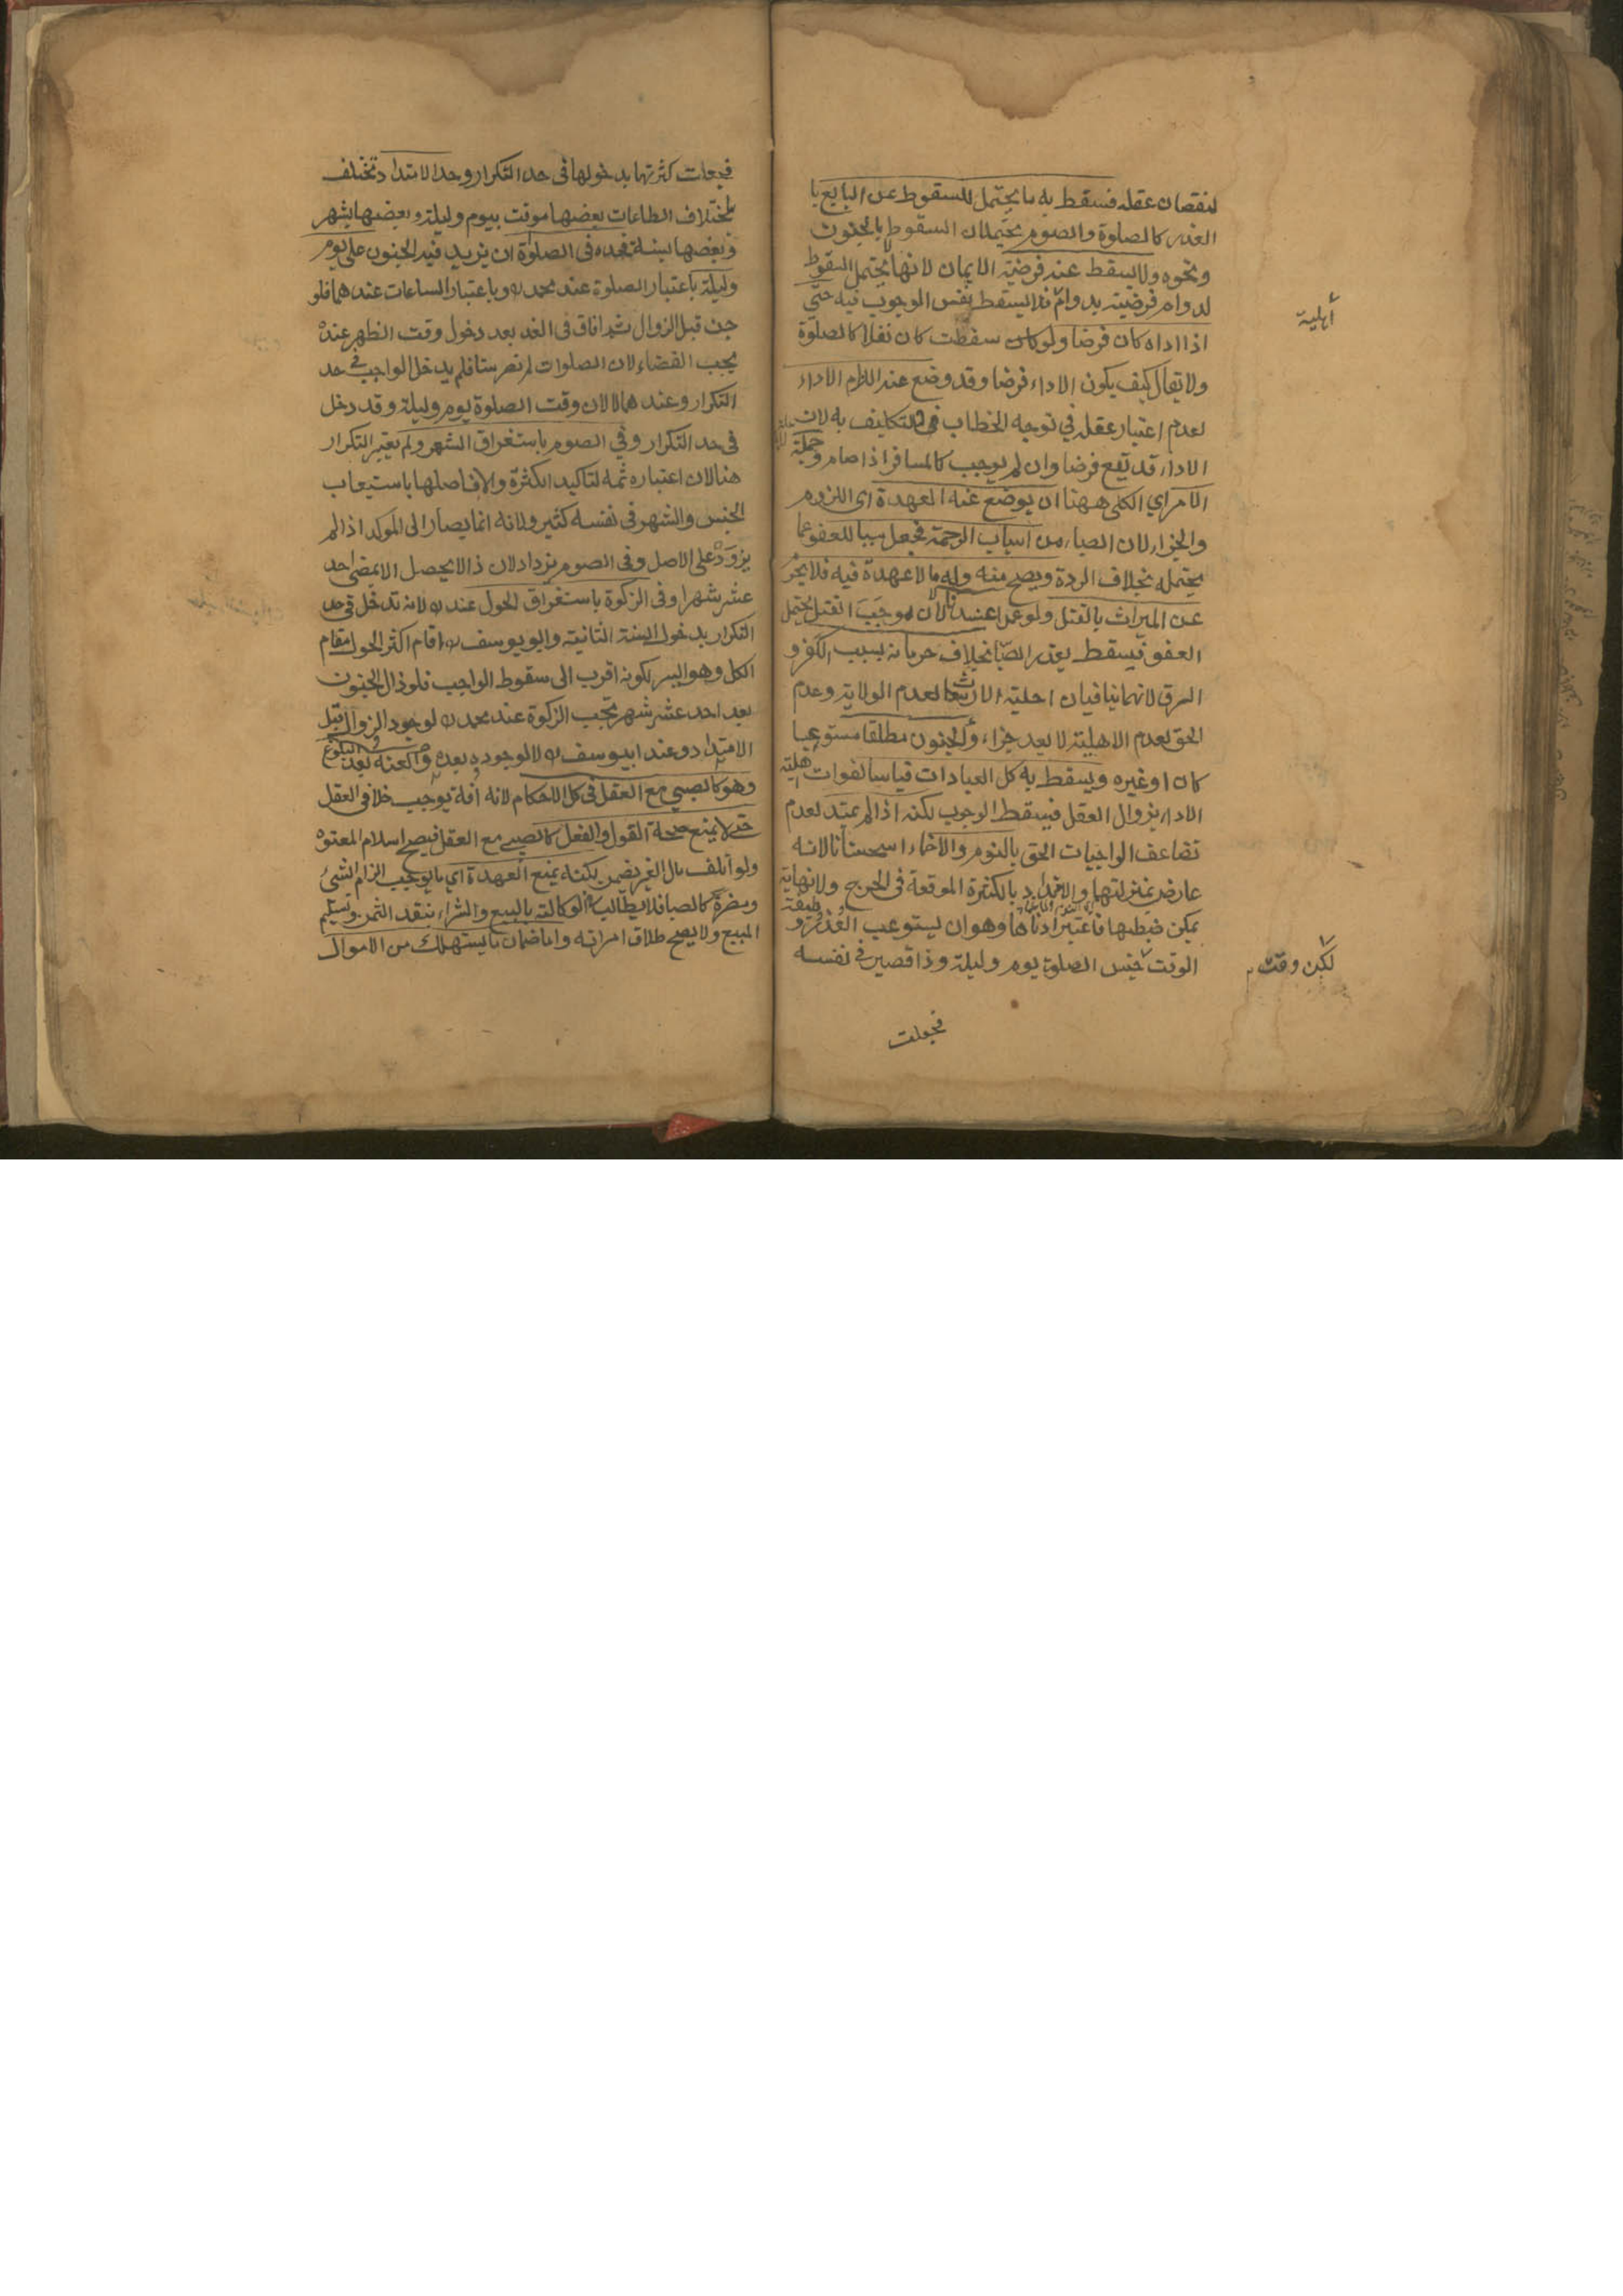 لنقصان عقله فسقط به ما يحتمل السقوط عن البالغ با
العذر كالصلوة والصوم يحتملان السقوط بالجنون
ونحوه ولا يسقط عنه فرضية الايمان لانها لا يحتمل السقوط
لدوام فرضيته بدوام فلا يسقط نفس الوجوب فيه حتى
اذا اداه كان فرضا ولو كان سقطت كان نفلا كالصلوة
ولا يقال كيف يكون الاداء فرضا وقد وضع عنه الزام الاداء
لعدم اعتبار عقله في توجه الخطاب في التكليف به لان
الاداء قد تقع فرضا وان لم يوجب كالمسافر اذا صام وجملة
الامر اي الكلى ههنا ان يوضع عنه العهدة اى اللزوم
والجزاء لان الصباء من اسباب الرحمة فجعل سببا للعفو عما
يحتمله بخلاف الردة ويصح منه وله ما لا عهدة فيه فلا يحرم
عن الميراث بالقتل ولو عمدا عندنا لان موجب القتل يحتمل
العفو فيسقط بعذر الصبا بخلاف حرمانه بسبب الكفر و
الرق لانهما ينافيان اهلية الارث لعدم الولاية وعدم
الحق لعدم الاهلية لا يعد جزاء والجنون مطلقا مستوعبا
كان او غيره ويسقط به كل العبادات قياسا لفوات اهلية
الاداء بزوال العقل فيسقط الوجوب لكنه اذا لم يمتد لعدم
تضاعف الواجبات الحق بالنوم والاغماء استحسانا لانه
عارض بمنزلتهما والامتداد بالكثرة الموقعة في الحرج ولا نهاية
يمكن ضبطها فاعتبر ادناها وهو ان يستوعب العذر و
الوقت جنس الصلوة يوم وليلة وذا قصير في نفسه
فجعلت
أهلية
لكن وقت
فجعلت كثرتها بدخولها فى حد التكرار وحد الامتداد تختلف
باختلاف الطاعات بعضها موقت بيوم وليلة وبعضها بشهر
وبعضها بسنة فحده فى الصلوة ان يزيد فيه الجنون على يوم
وليلة باعتبار الصلوة عند محمد وباعتبار الساعات عندهما فلو
جن قبل الزوال ثم افاق فى الغد بعد دخول وقت الظهر عنده
يجب القضاء لان الصلوات لم تصر ستا فلم يدخل الواجب في حد
التكرار وعندهما لا لان وقت الصلوة يوم وليلة وقد دخل
فى حد التكرار وفي الصوم باستغراق الشهر ولم يعتبر التكرار
هنا لان اعتباره ثمه لتاكيد الكثرة والا فاصلها باستيعاب
الجنس والشهر فى نفسه كثير ولانه انما يصار الى المؤكد اذا لم
يزدد على الاصل وفى الصوم يزداد لان ذا لا يحصل الا بمضى احد
عشر شهرا وفى الزكوة باستغراق الحول عنده لانه تدخل فى حد
التكرار بدخول السنة الثانية وابو يوسف اقام اكثر الحول مقام
الكل وهو اليسر لكونه اقرب الى سقوط الواجب فلو زال الجنون
بعد احد عشر شهر تجب الزكوة عند محمد لوجود الزوال قبل
الامتداد وعند ابى يوسف لا لوجوده بعده والعته بعد البلوغ
وهو كالصبي مع العقل فى كل الاحكام لانه آفة توجب خللا في العقل
حتى لا يمنع صحة القول والفعل كالصبي مع العقل فيصح اسلام المعتوه
ولو اتلف مال الغير يضمن لكنه يمنع العهدة اي ما يوجب الزام الشئ
ومضرة كالصبا فلا يطالب في الوكالة بالبيع والشراء بنقد الثمن وتسليم
المبيع ولا يصح طلاق امراته واما ضمان ما يستهلك من الاموال